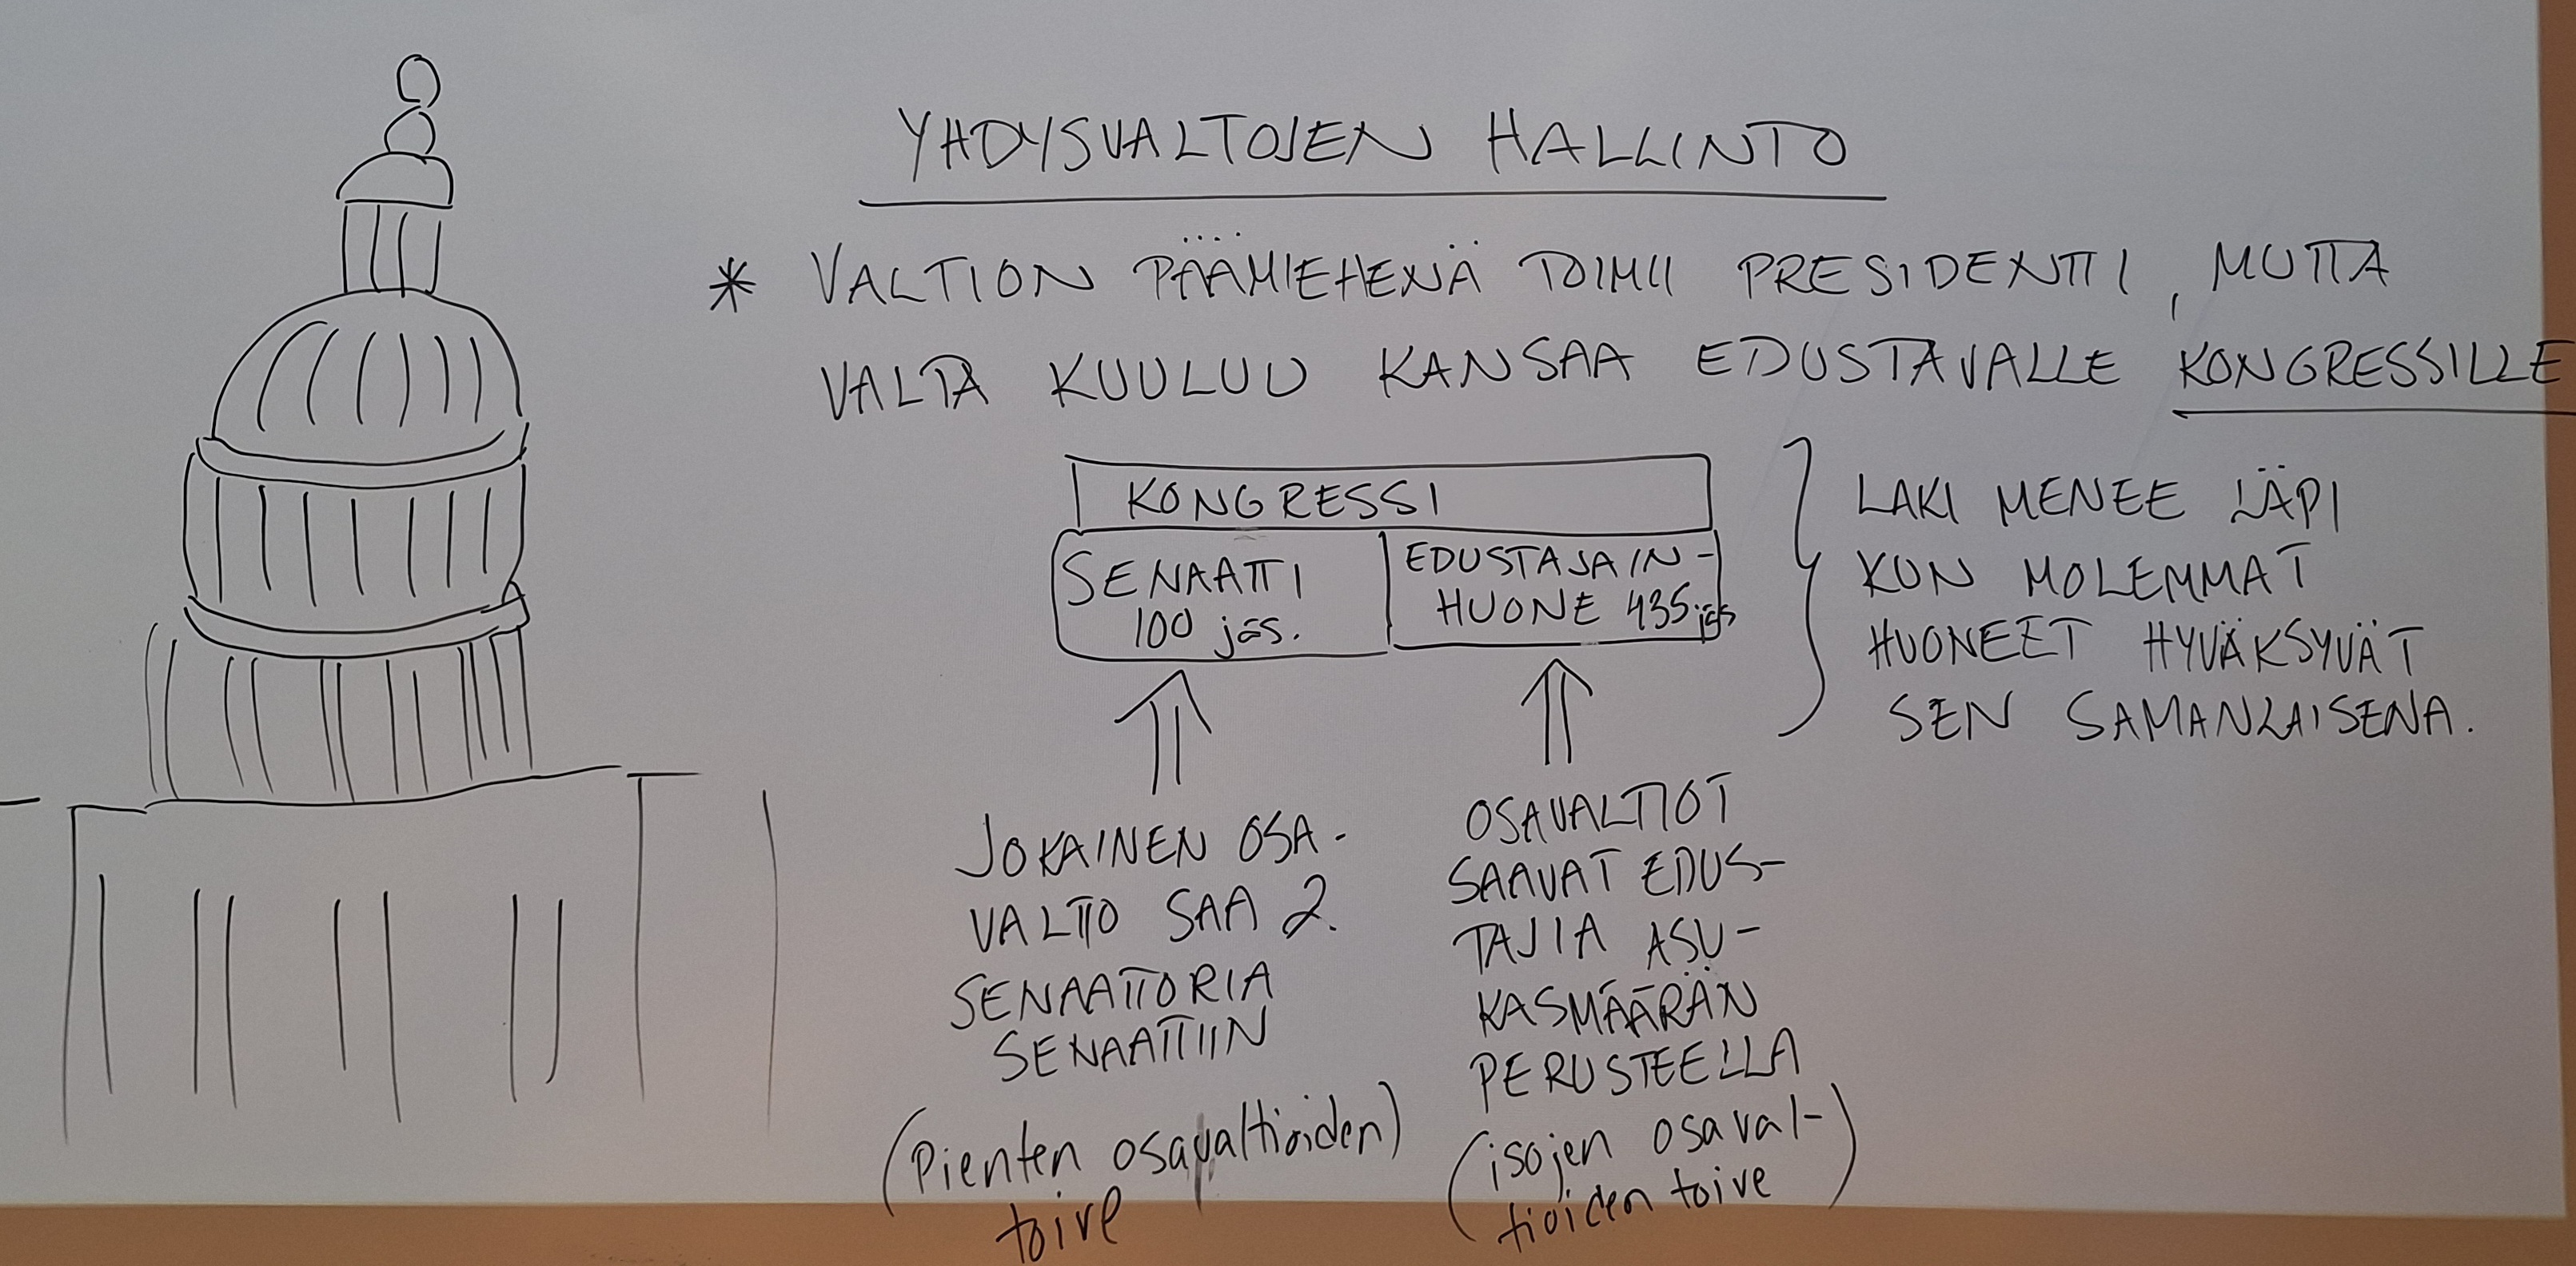 YHDYSVALTOJEN HALLINTO
* VALTION PÄÄMIEHENÄ TOIMII PRESIDENTTI, MUTTA
VALTA KUULUU KANSAA EDUSTAVALLE KONGRESSILLE
KONGRESSI
SENAATTI
100 jäs.
EDUSTAJAIN-
HUONE 435 jäs
LAKI MENEE LÄPI
KUN MOLEMMAT
HUONEET HYVÄKSYVÄT
SEN SAMANLAISENA.
JOKAINEN OSA-
VALTIO SAA 2
SENAATTORIA
SENAATTIIN
(Pienten osavaltioiden)
toive
OSAVALTIOT
SAAVAT EDUS-
TAJIA ASU-
KASMÄÄRÄN
PERUSTEELLA
(isojen osaval-
tioiden toive)